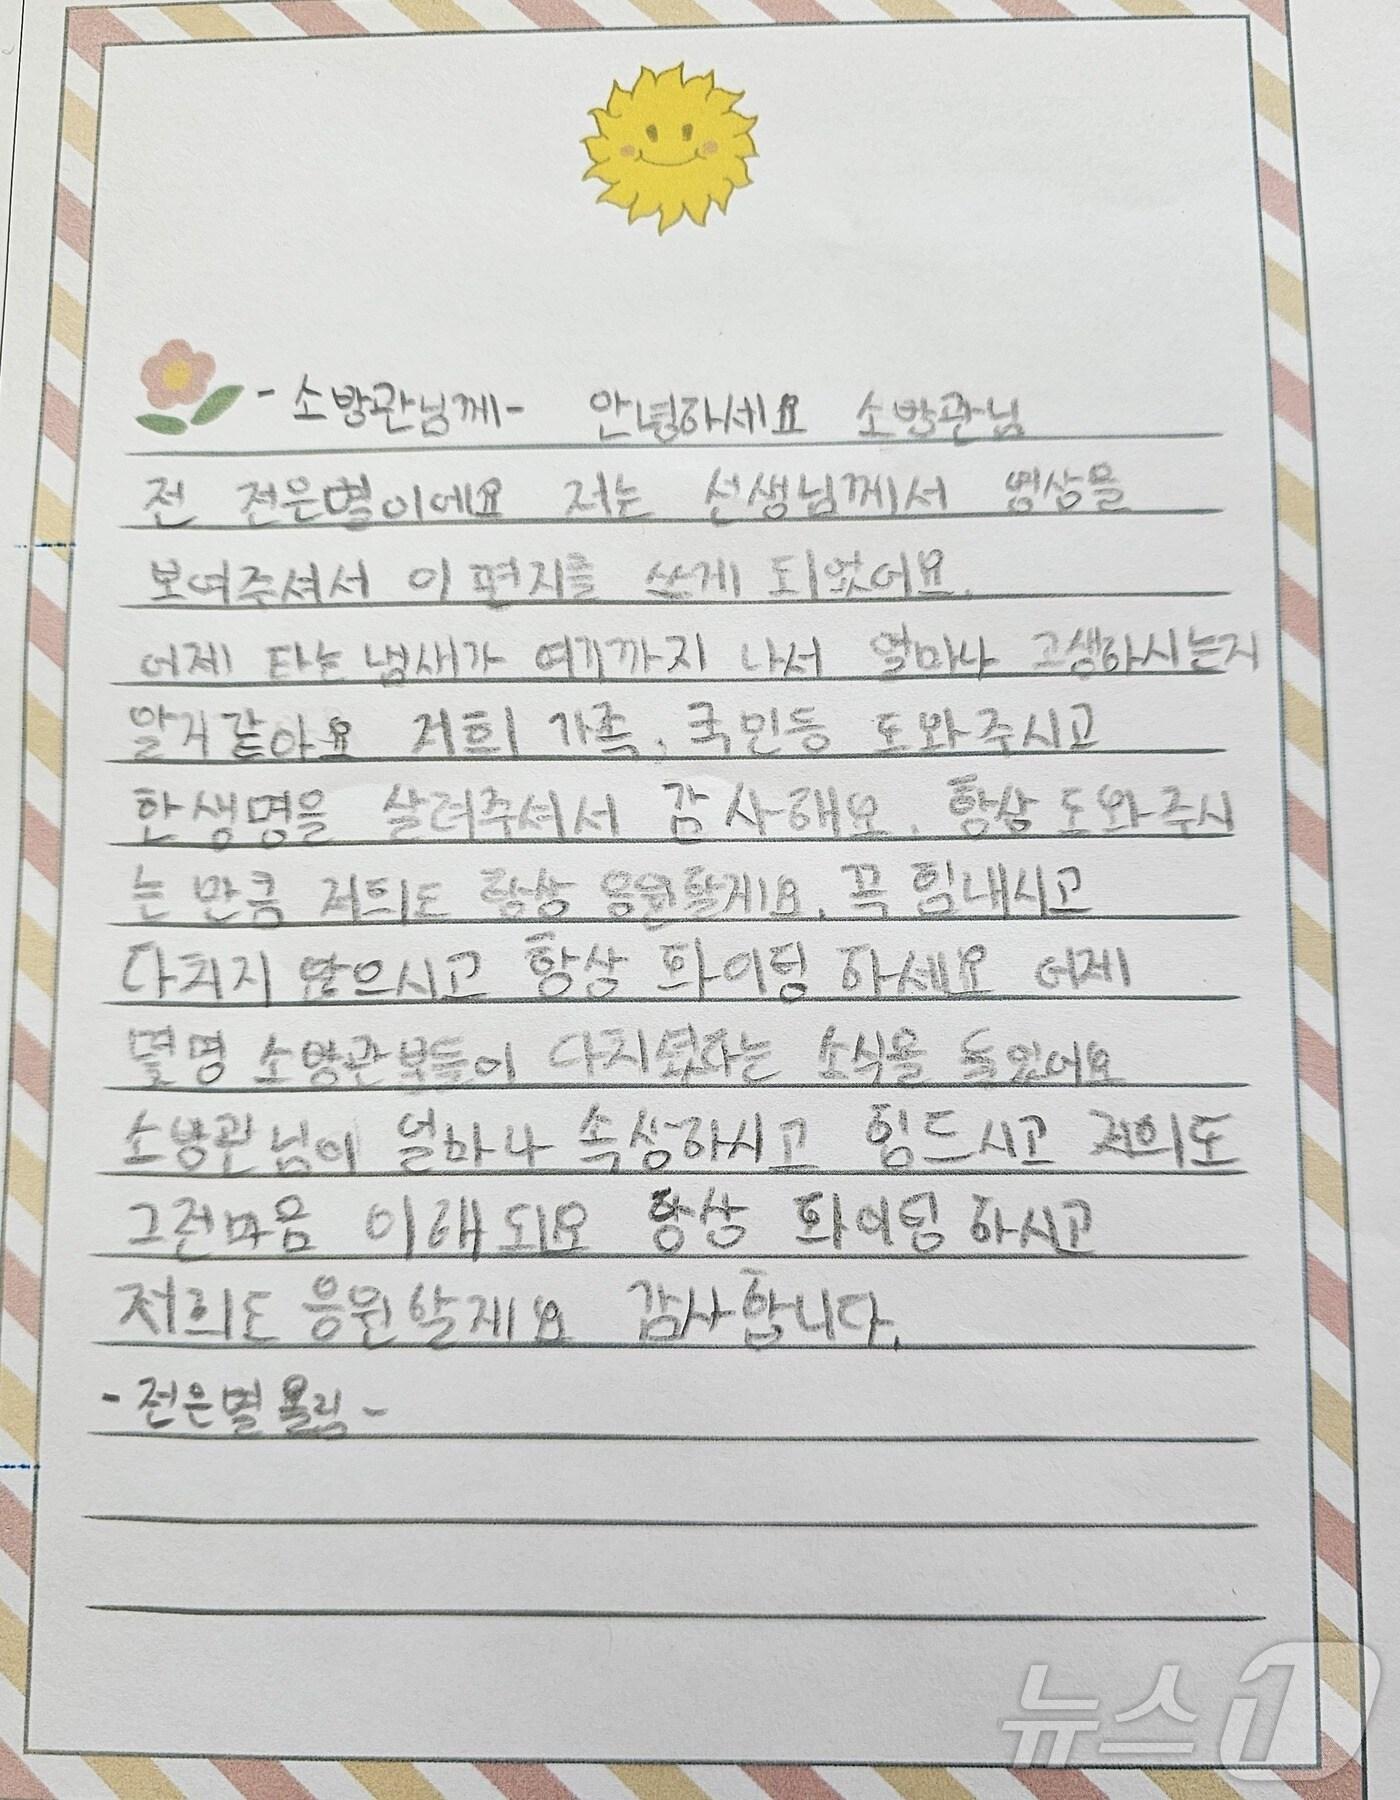 -소방관님께- 안녕하세요 소방관님
전 전은별이에요 저는 선생님께서 영상을
보여주셔서 이 편지를 쓰게 되었어요.
어제 타는냄새가 여기까지 나서 얼마나 고생하시는지
알거같아요 저희 가족, 국민등 도와주시고
한생명을 살려주셔서 감사해요. 항상 도와주시
는 만큼 저희도 항상 응원할게요. 꼭 힘내시고
다치지 않으시고 항상 화이팅 하세요 어제
몇명 소방관분들이 다치셨다는 소식을 들었어요
소방관님이 얼마나 속상하시고 힘드시고 저희도
그런마음 이해되요 항상 화이팅 하시고
저희도 응원할게요 감사합니다.
-전은별 올림-
뉴스1